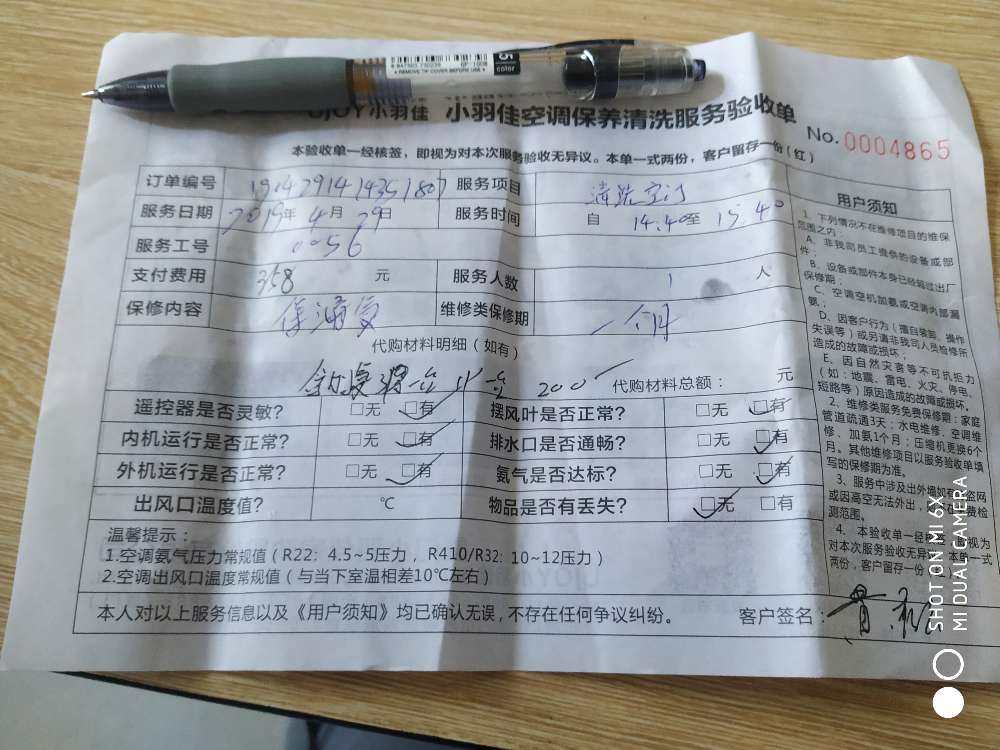 6 947503 730236 GP-1008
REMOVE TIP COVER BEFORE USE
5 color
UJOY小羽佳 小羽佳空调保养清洗服务验收单
No. 0004865
本验收单一经核签，即视为对本次服务验收无异议。本单一式两份，客户留存一份（红）
订单编号 服务项目 清洗空调
服务日期 2019年 4月 29日 服务时间 自 14.40至 15.40
服务工号 0056
支付费用 358 元 服务人数 1 人
保修内容 维修类保修期 一个月
代购材料明细（如有）
200 代购材料总额： 元
遥控器是否灵敏? □无 □有 摆风叶是否正常? □无 □有
内机运行是否正常? □无 □有 排水口是否通畅? □无 □有
外机运行是否正常? □无 □有 氨气是否达标? □无 □有
出风口温度值? ℃ 物品是否有丢失? □无 □有
温馨提示：
1.空调氨气压力常规值（R22: 4.5~5压力，R410/R32: 10~12压力）
2.空调出风口温度常规值（与当下室温相差10℃左右）
本人对以上服务信息以及《用户须知》均已确认无误，不存在任何争议纠纷。 客户签名：
用户须知
1、下列情况不在维修项目的维保
范围之内：
A、非我司员工提供的设备或部
件；
B、设备或部件本身已经超过出厂
保修期；
C、空调空机加氨或空调内部漏
氨；
D、因客户行为（擅自装卸、操作
失误等）或另请非我司人员检修所
造成的故障或损坏；
E、因自然灾害等不可抗拒力
（如：地震、雷电、火灾、停电、
短路等）原因造成的故障或损坏。
2、维修类服务免费保修期：家庭
管道疏通3天；水电维修、空调维
修、加氨1个月；压缩机更换6个
月。其他维修项目以服务验收单填
写的保修期为准。
3、服务中涉及出外墙如有 盗网
或因高空无法外出， 费检
测范围。
4、本验收单一经核签，即视为
对本次服务验收无异 本单一式
两份，客户留存一份（红）
SHOT ON MI 6X
MI DUAL CAMERA